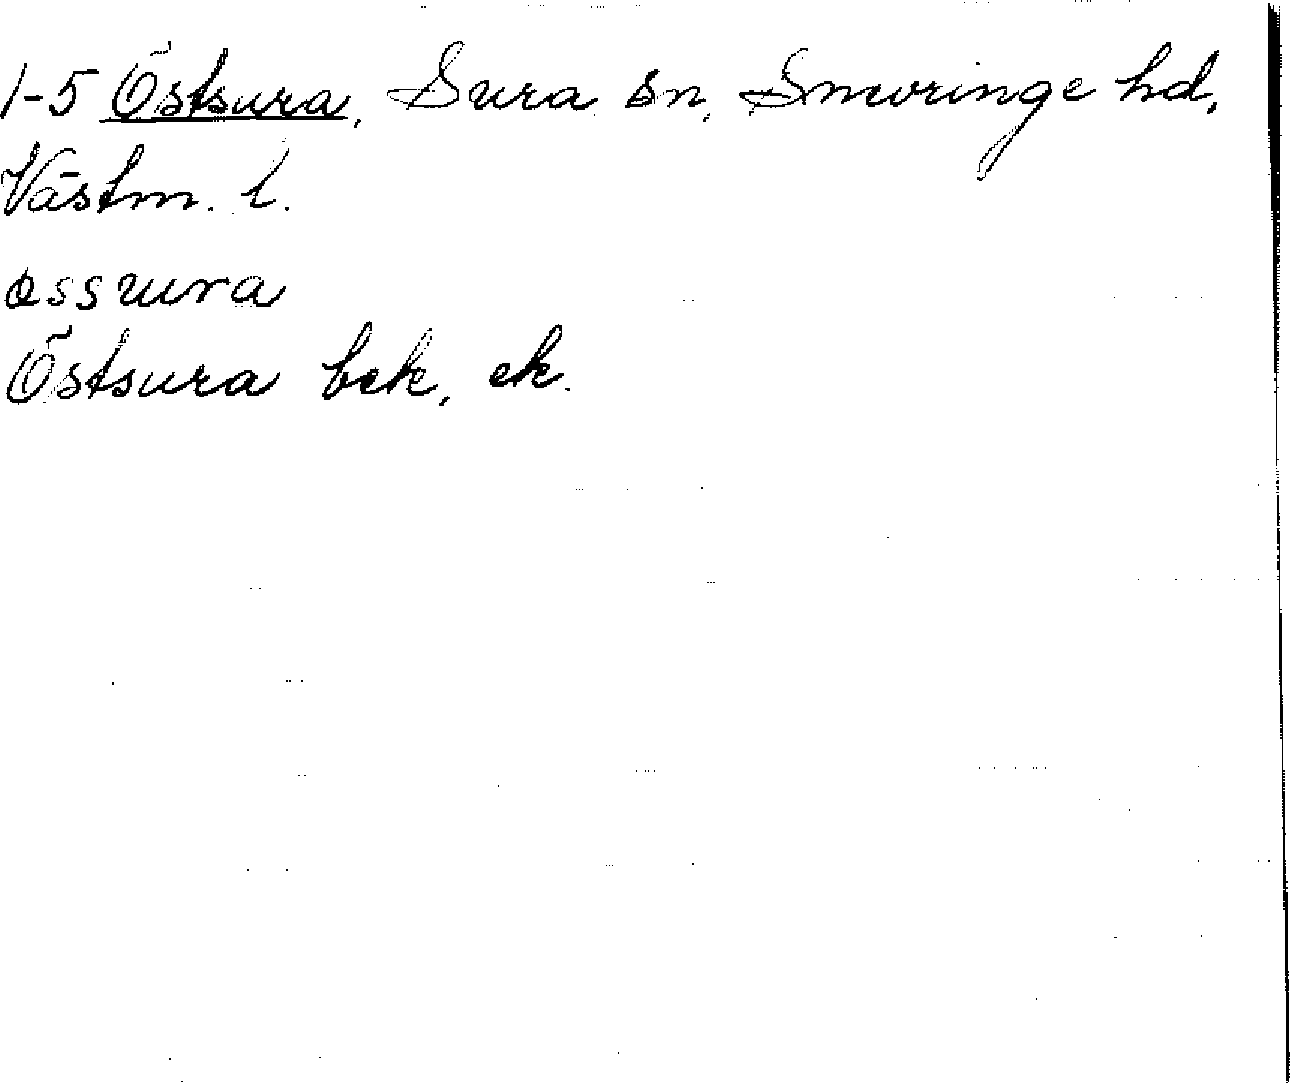 1-5 Östsura, Sura sn, Snevringe hd,
Västm. l.
össura
Östsura bek, ek.